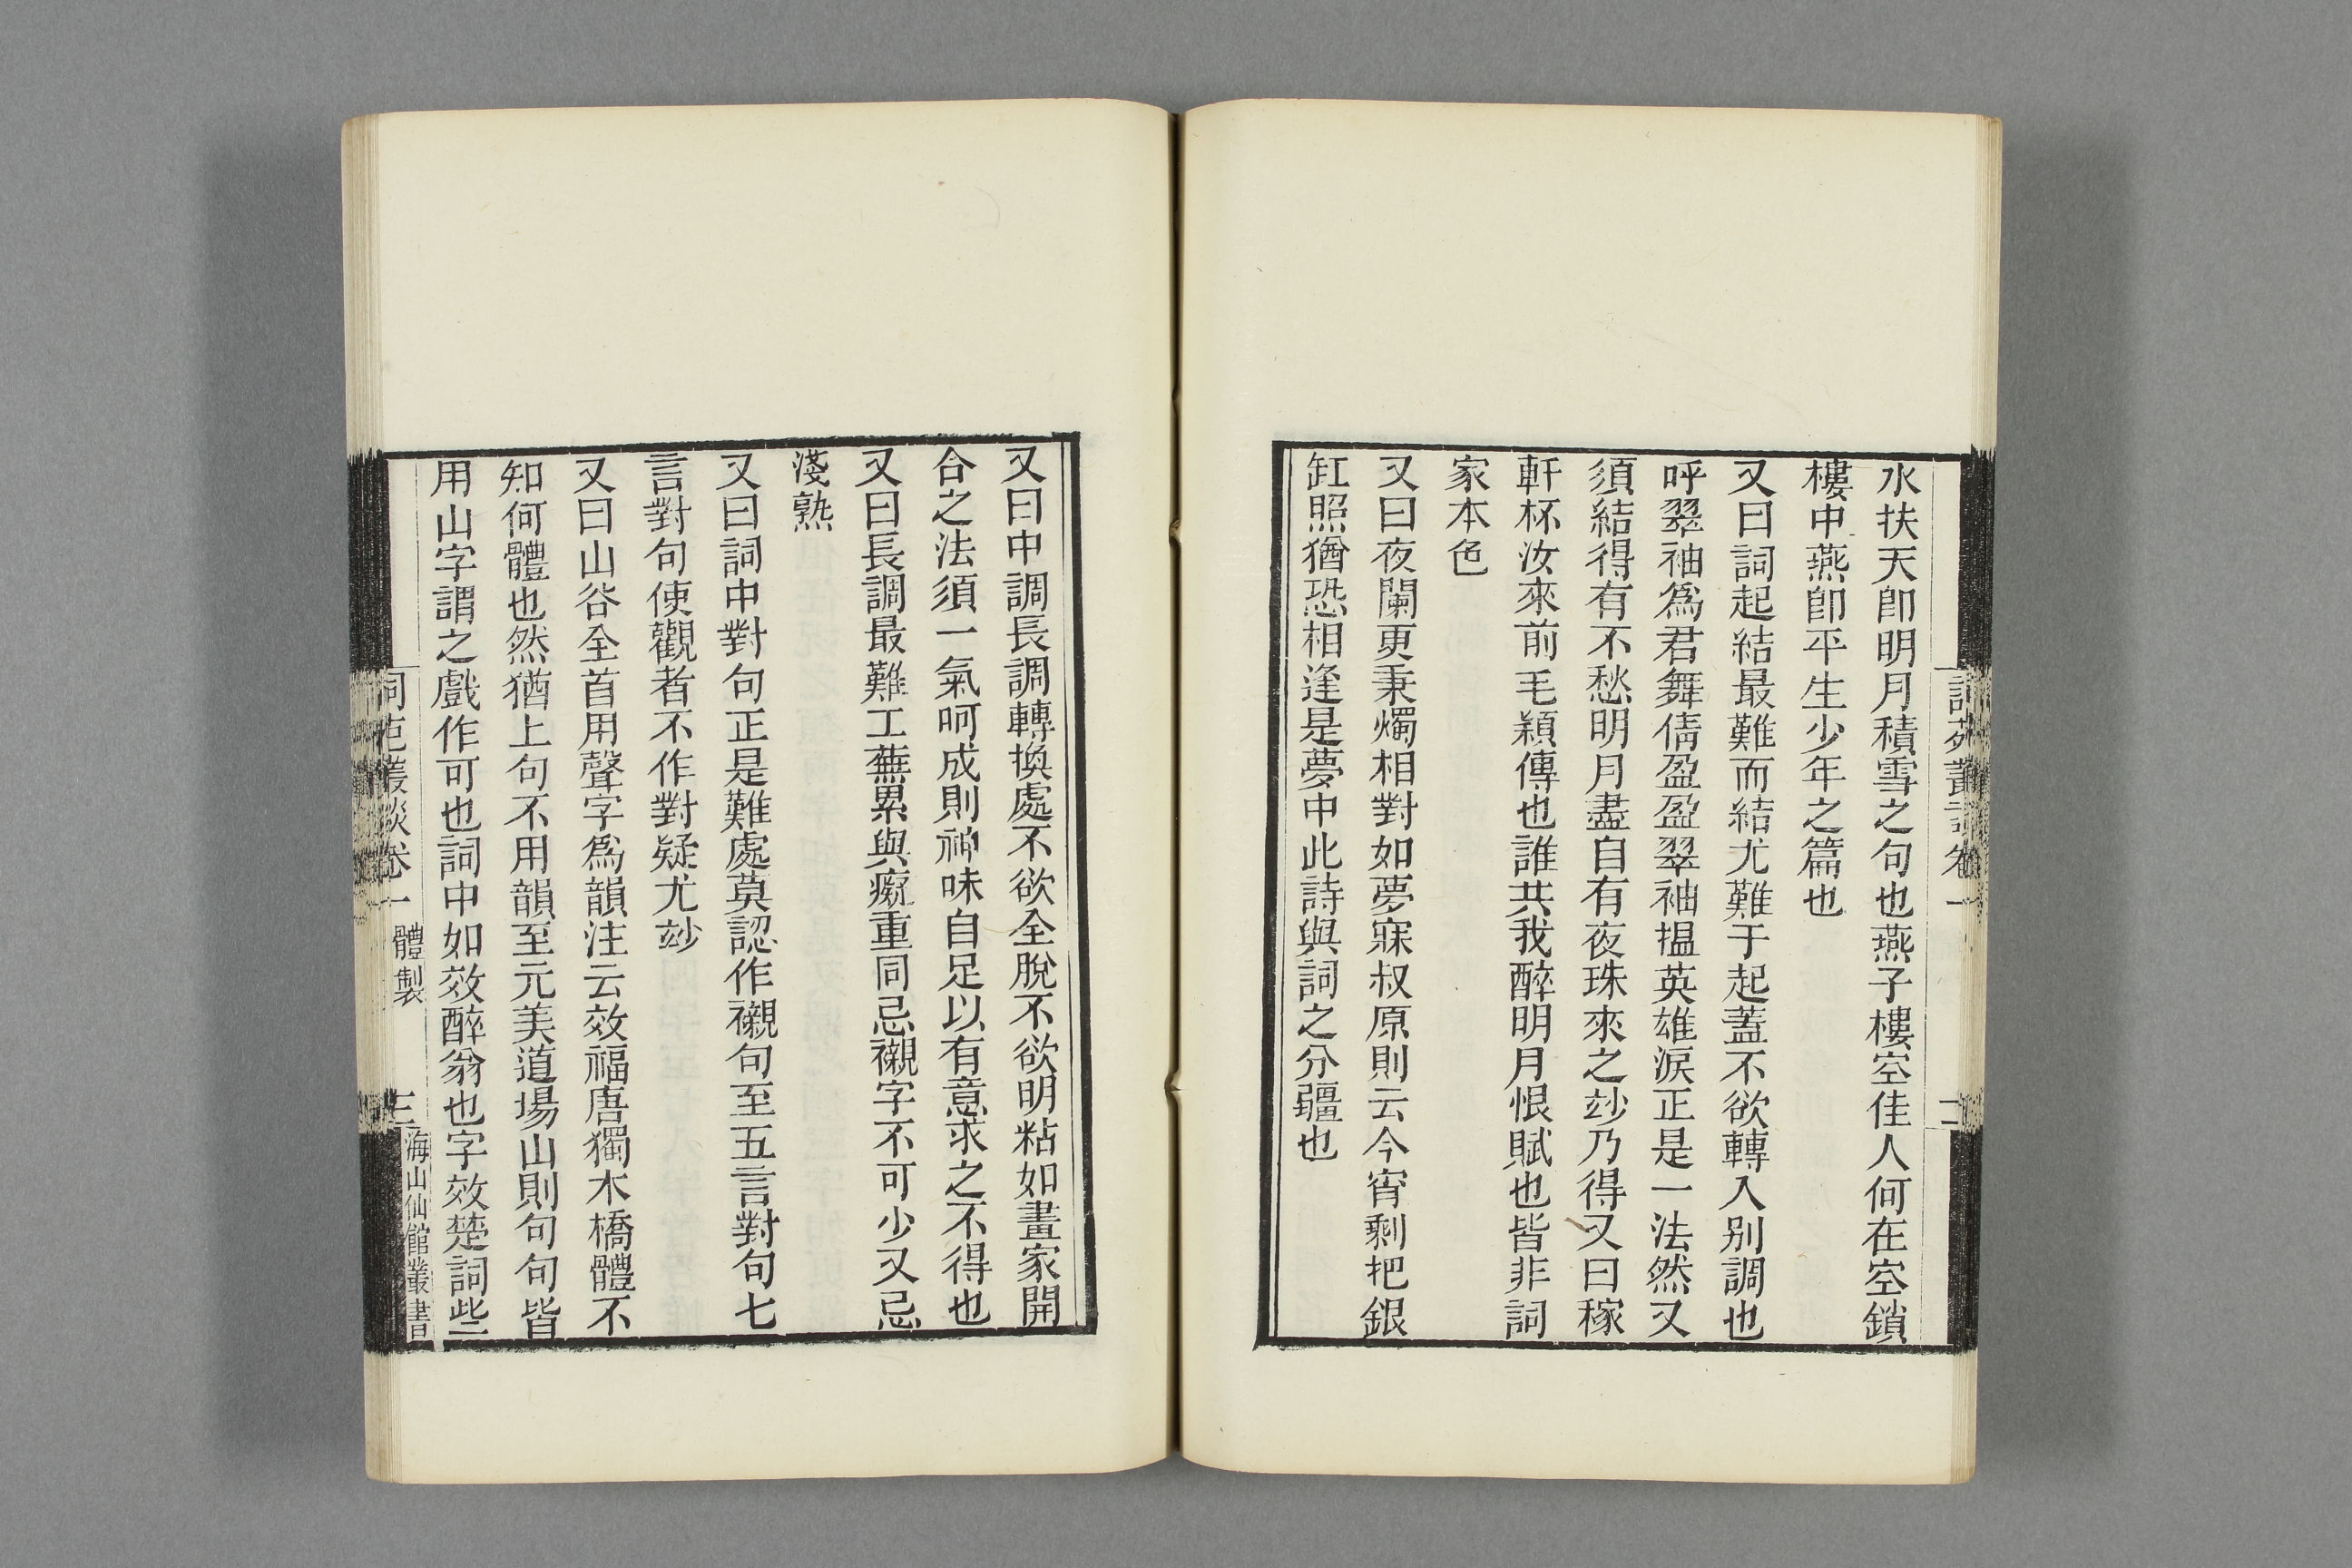 水扶天卽明月積雪之句也燕子樓空佳人何在空鎖
樓中燕卽平生少年之篇也
又曰詞起結最難而結尤難于起蓋不欲轉入别調也
呼翠袖爲君舞倩盈盈翠袖揾英雄淚正是一法然又
須結得有不愁明月盡自有夜珠來之玅乃得又曰稼
軒杯汝來前毛穎傳也誰共我醉明月恨賦也皆非詞
家本色
又曰夜闌更秉燭相對如夢寐叔原則云今宵剩把銀
缸照猶恐相逢是夢中此詩與詞之分疆也
詞苑叢談卷一
二
又曰中調長調轉換處不欲全脫不欲明粘如畫家開
合之法須一氣呵成則神味自足以有意求之不得也
又曰長調最難工蕪累與癡重同忌襯字不可少又忌
淺熟
又曰詞中對句正是難處莫認作襯句至五言對句七
言對句使觀者不作對疑尤玅
又曰山谷全首用聲字爲韻注云效福唐獨木橋體不
知何體也然猶上句不用韻至元美道場山則句句皆
用山字謂之戲作可也詞中如效醉翁也字效楚詞些
詞苑叢談卷一 體製
三
海山仙館叢書